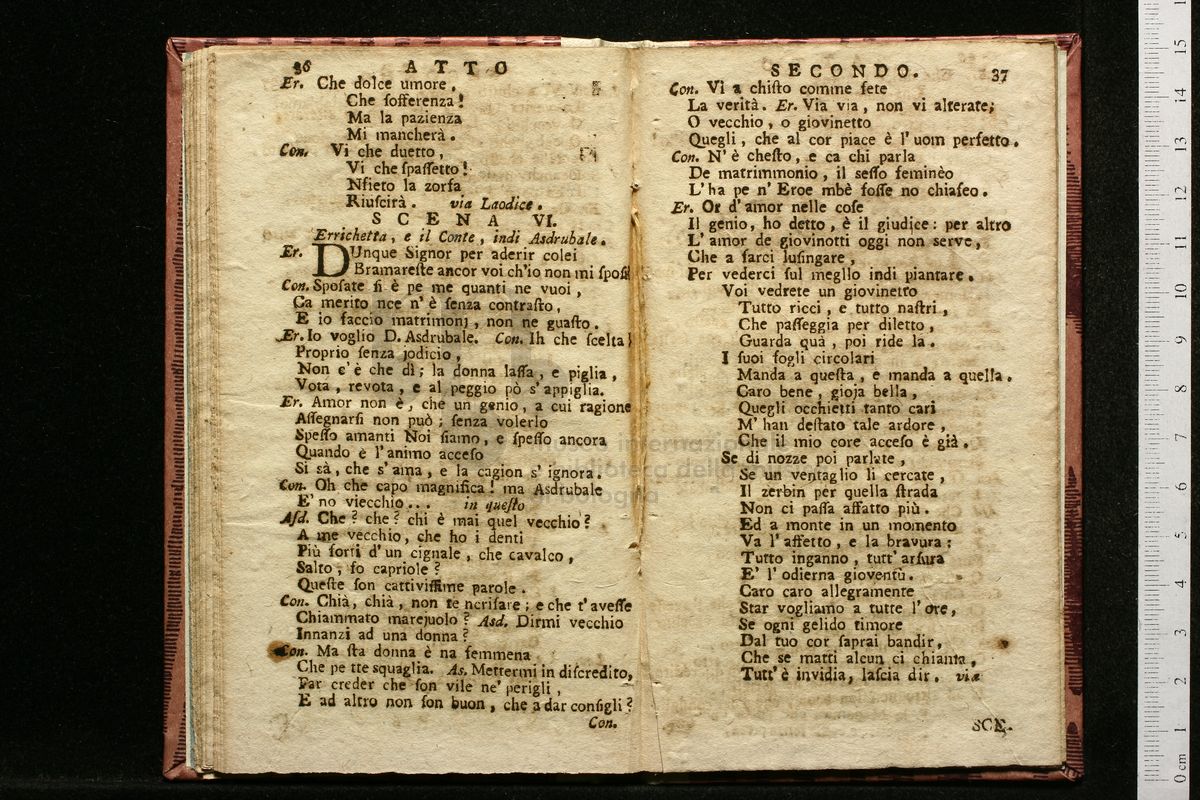 36 ATTO
Er. Che dolce umore,
Che ſofferenza!
Ma la pazienza
Mi mancherà.
Con. Vi che duetto,
Vi che ſpaſſetto!
Nfieto la zorfa
Riuſcirà. via Laodice.
SCENA VI.
Errichetta, e il Conte, indi Asdrubale.
Er. DUnque Signor per aderir colei
Bramareſte ancor voi ch'io non mi ſpoſi
Con. Spoſate ſi è pe me quanti ne vuoi,
Ca merito nce n'è ſenza contraſto,
E io faccio matrimonj, non ne guaſto.
Er. Io voglio D. Asdrubale. Con. Ih che ſcelta!
Proprio ſenza jodicio,
Non c'è che dì; la donna laſſa, e piglia,
Vota, revota, e al peggio pò s'appiglia.
Er. Amor non è, che un genio, a cui ragione
Aſſegnarſi non può; ſenza volerlo
Speſſo amanti Noi ſiamo, e ſpeſſo ancora
Quando è l'animo acceſo
Si sà, che s'ama, e la cagion s'ignora.
Con. Oh che capo magnifica! ma Asdrubale
E' no viecchio... in queſto
Aſd. Che? che? chi è mai quel vecchio?
A me vecchio, che ho i denti
Più forti d'un cignale, che cavalco,
Salto, fo capriole?
Queſte ſon cattiviſſime parole.
Con. Chià, chià, non te ncriſare; e che t'aveſſe
Chiammato marejuolo? Asd. Dirmi vecchio
Innanzi ad una donna?
Con. Ma ſta donna è na femmena
Che pe tte squaglia. As. Mettermi in diſcredito,
Far creder che ſon vile ne' perigli,
E ad altro non ſon buon, che a dar conſigli?
Con.
SECONDO. 37
Con. Vi a chiſto comme fete
La verità. Er. Via via, non vi alterate;
O vecchio, o giovinetto
Quegli, che al cor piace è l'uom perfetto.
Con. N'è cheſto, e ca chi parla
De matrimmonio, il ſeſſo feminèo
L'ha pe n'Eroe mbè foſſe no chiaſeo.
Er. Or d'amor nelle coſe
Il genio, ho detto, è il giudice: per altro
L'amor de giovinotti oggi non serve,
Che a farci luſingare,
Per vederci ſul megllo indi piantare.
Voi vedrete un giovinetto
Tutto ricci, e tutto naſtri,
Che paſſeggia per diletto,
Guarda quà, poi ride la.
I ſuoi fogli circolari
Manda a queſta, e manda a quella.
Caro bene, gioja bella,
Quegli occhietti tanto cari
M'han deſtato tale ardore,
Che il mio core acceſo è già.
Se di nozze poi parlate,
Se un ventaglio li cercate,
Il zerbin per quella ſtrada
Non ci paſſa affatto più.
Ed a monte in un momento
Va l'affetto, e la bravura:
Tutto inganno, tutt'arſura
E' l'odierna gioventù.
Caro caro allegramente
Star vogliamo a tutte l'ore,
Se ogni gelido timore
Dal tuo cor ſaprai bandir,
Che se matti alcun ci chiama,
Tutt'è invidia, laſcia dir. via
SCE.